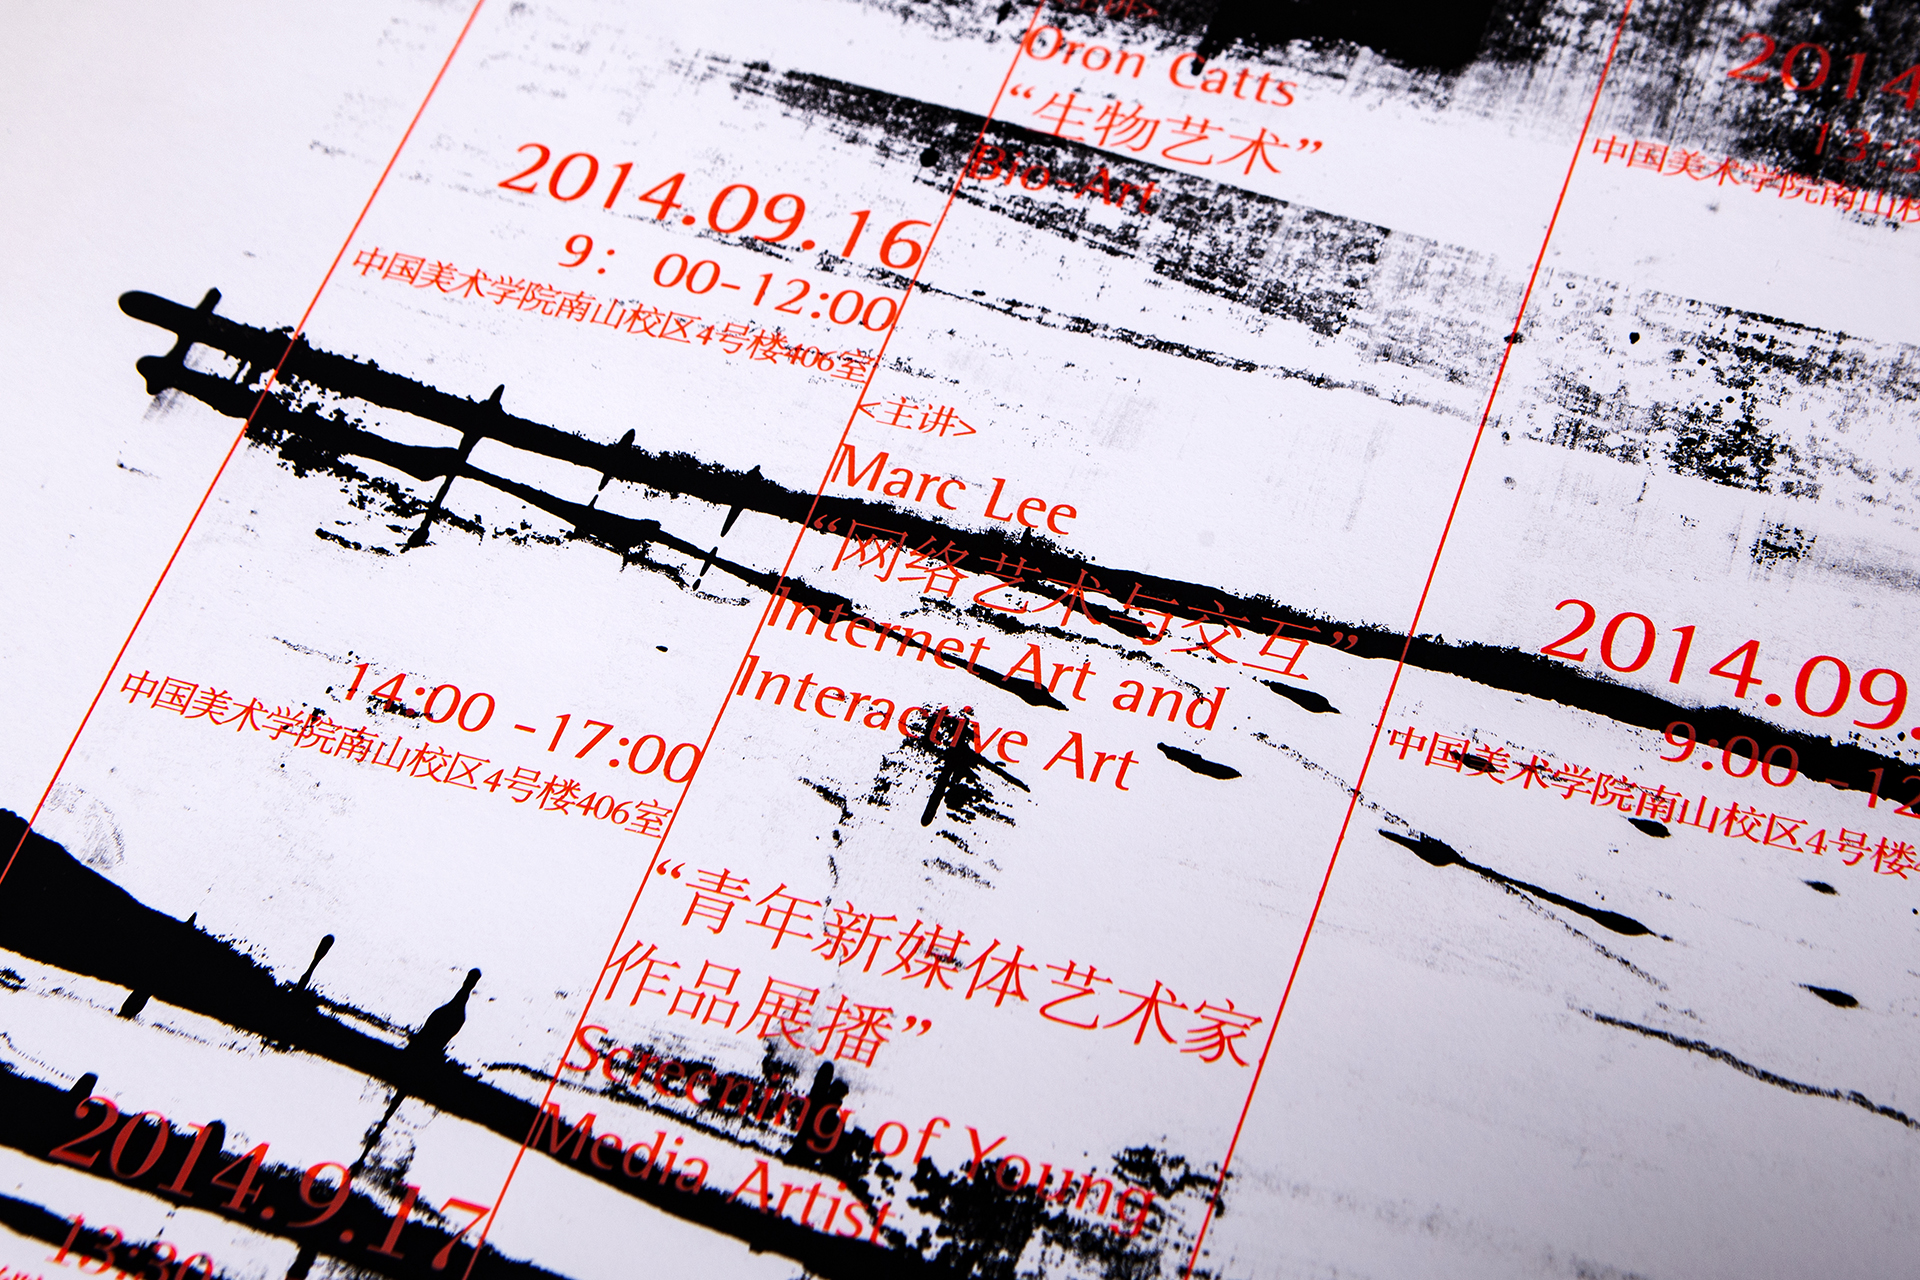 <主讲>
Oron Catts
“生物艺术”
Bio-Art
2014.09.16
9： 00-12:00
中国美术学院南山校区4号楼406室
<主讲>
Marc Lee
“网络艺术与交互”
Internet Art and
Interactive Art
14:00 -17:00
中国美术学院南山校区4号楼406室
“青年新媒体艺术家
作品展播”
Screening of Young
Media Artist
2014.9.17
13:30
2014
13:3
中国美术学院南山校
2014.09.
9:00 -12
中国美术学院南山校区4号楼4